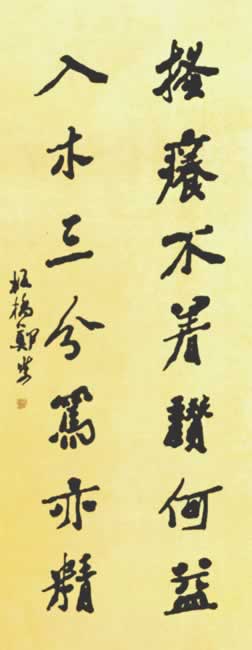 搔癢不着讚何益
入木三分罵亦精
板橋鄭燮